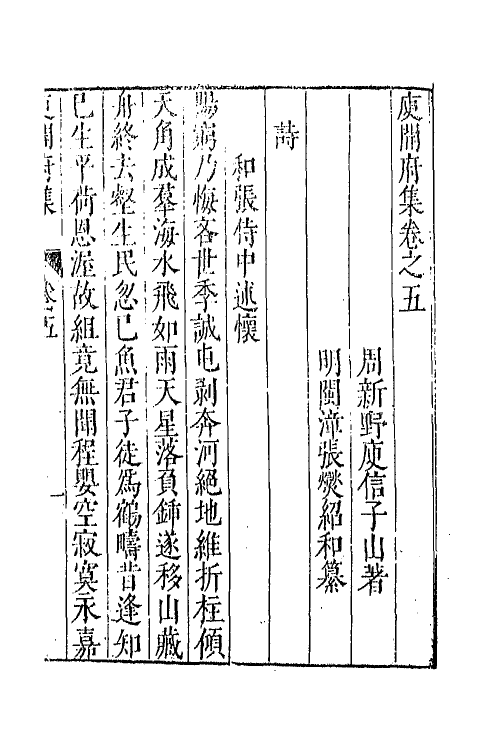 庾開府集卷之五
周新野庾信子山著
明閩漳張燮紹和纂
詩
和張侍中述懷
陽窮乃悔吝世季誠屯剥奔河絕地維折柱傾
天角成羣海水飛如雨天星落負鍤遂移山藏
舟終去壑生民忽已魚君子徒爲鶴疇昔逢知
已生平荷恩渥故組竟無聞程嬰空寂寞永嘉
庾開府集 卷五 一